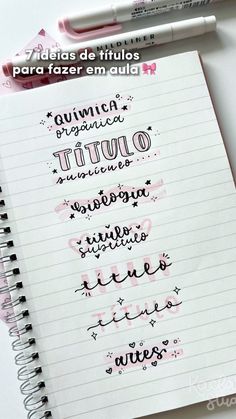 MILDLINER
7 ideias de títulos
para fazer em aula
QUÍMICA
orgânica
TÍTULO
subtítulo
biologia
título
subtítulo
título
TÍTULO
título
artes